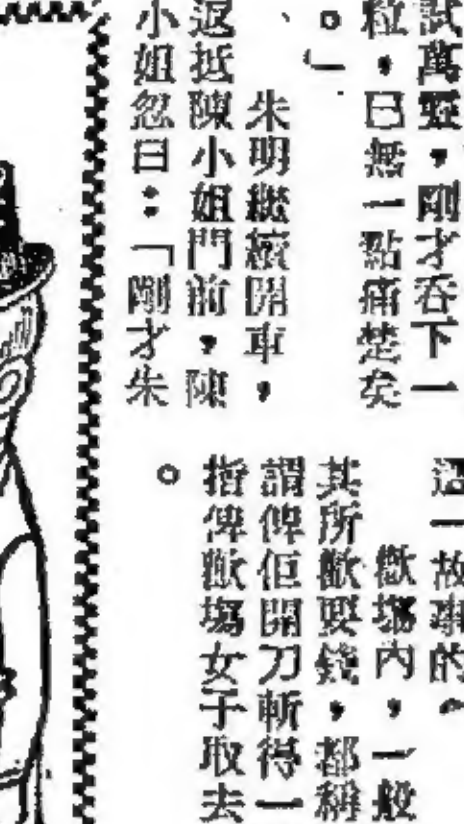 試萬靈，剛才吞下一
粒，已無一點痛楚矣
。」
朱明繼續開車，
返抵陳小姐門前，陳
小姐忽曰：「剛才朱
這一故事的，
歡塲內，一般
其所歡要錢，都稱
謂俾佢開刀斬得一
指俾歡塲女子取去
。